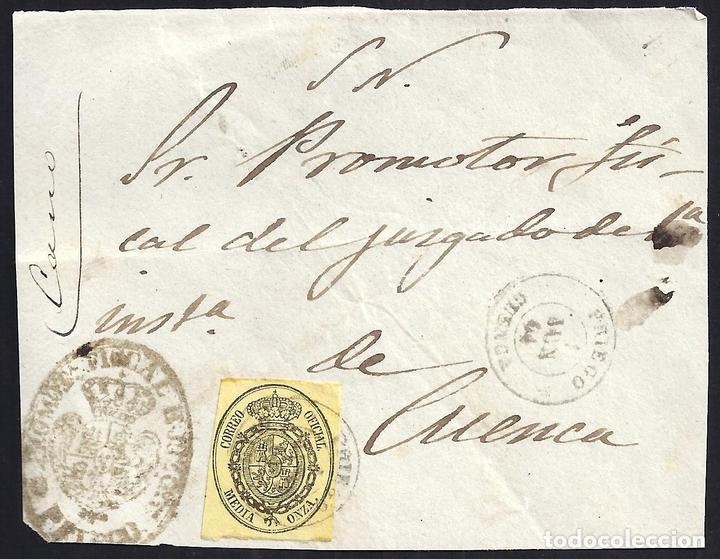 S. N.
Sr. Promotor Fis-
cal del juzgado de 1ª
insta.
de
Cuenca
CUENCA
PRIEGO
CORREO OFICIAL
MEDIA ONZA.
todocoleccion